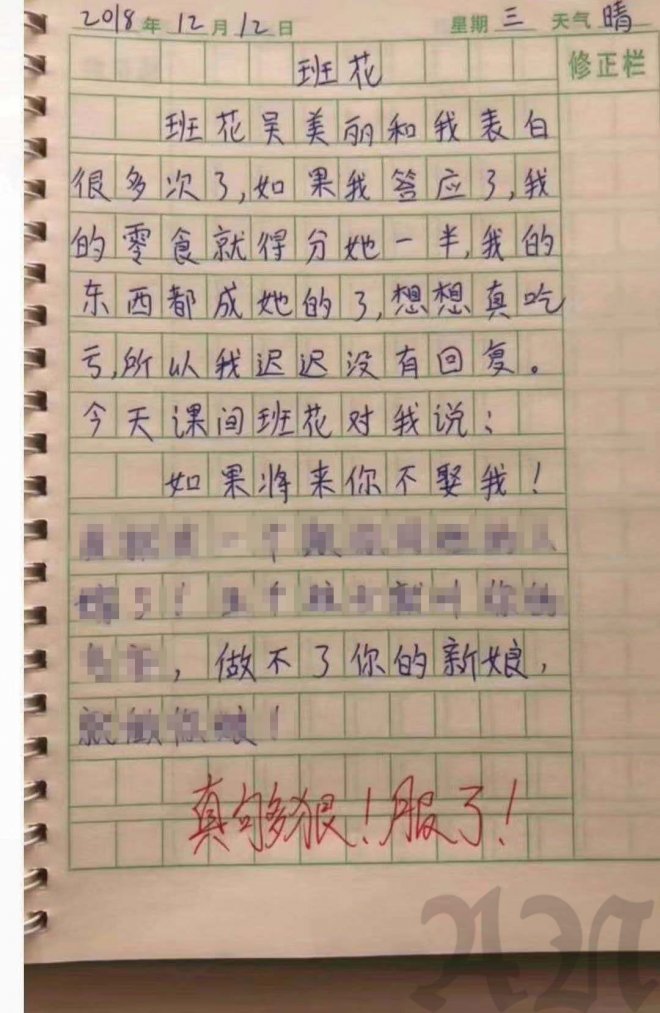 2018年12月12日 星期三 天气晴
班花 修正栏
班花吴美丽和我表白
很多次了,如果我答应了,我
的零食就得分她一半,我的
东西都成她的了,想想真吃
亏,所以我迟迟没有回复。
今天课间班花对我说:
如果将来你不娶我!
,做不了你的新娘,
真够狠!服了!
AN